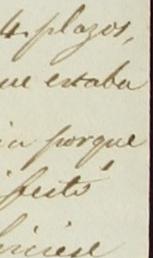 4 plazos,
ue estaba
ia porque
ifestó
hiciese